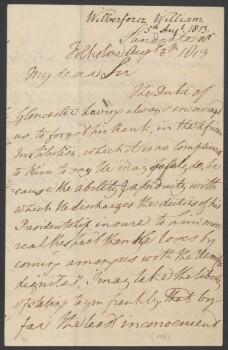 Wilberforce William
5th Augt 1813
Sandgate nr
Folkstone Augt 5th 1813
My dear Sir
The Duke of
Gloucester having always encouraged
us to forget his Rank, in the African
Institution, which it is no compliment
to Him to say He may safely do, be
cause the ability & assiduity with
which He discharges the duties of his
Presidentship insure to him more
real Respect than He loses by
coming among us without the
dignitas, I may take the liberty
of stating to you frankly, that by
far the least inconvenient